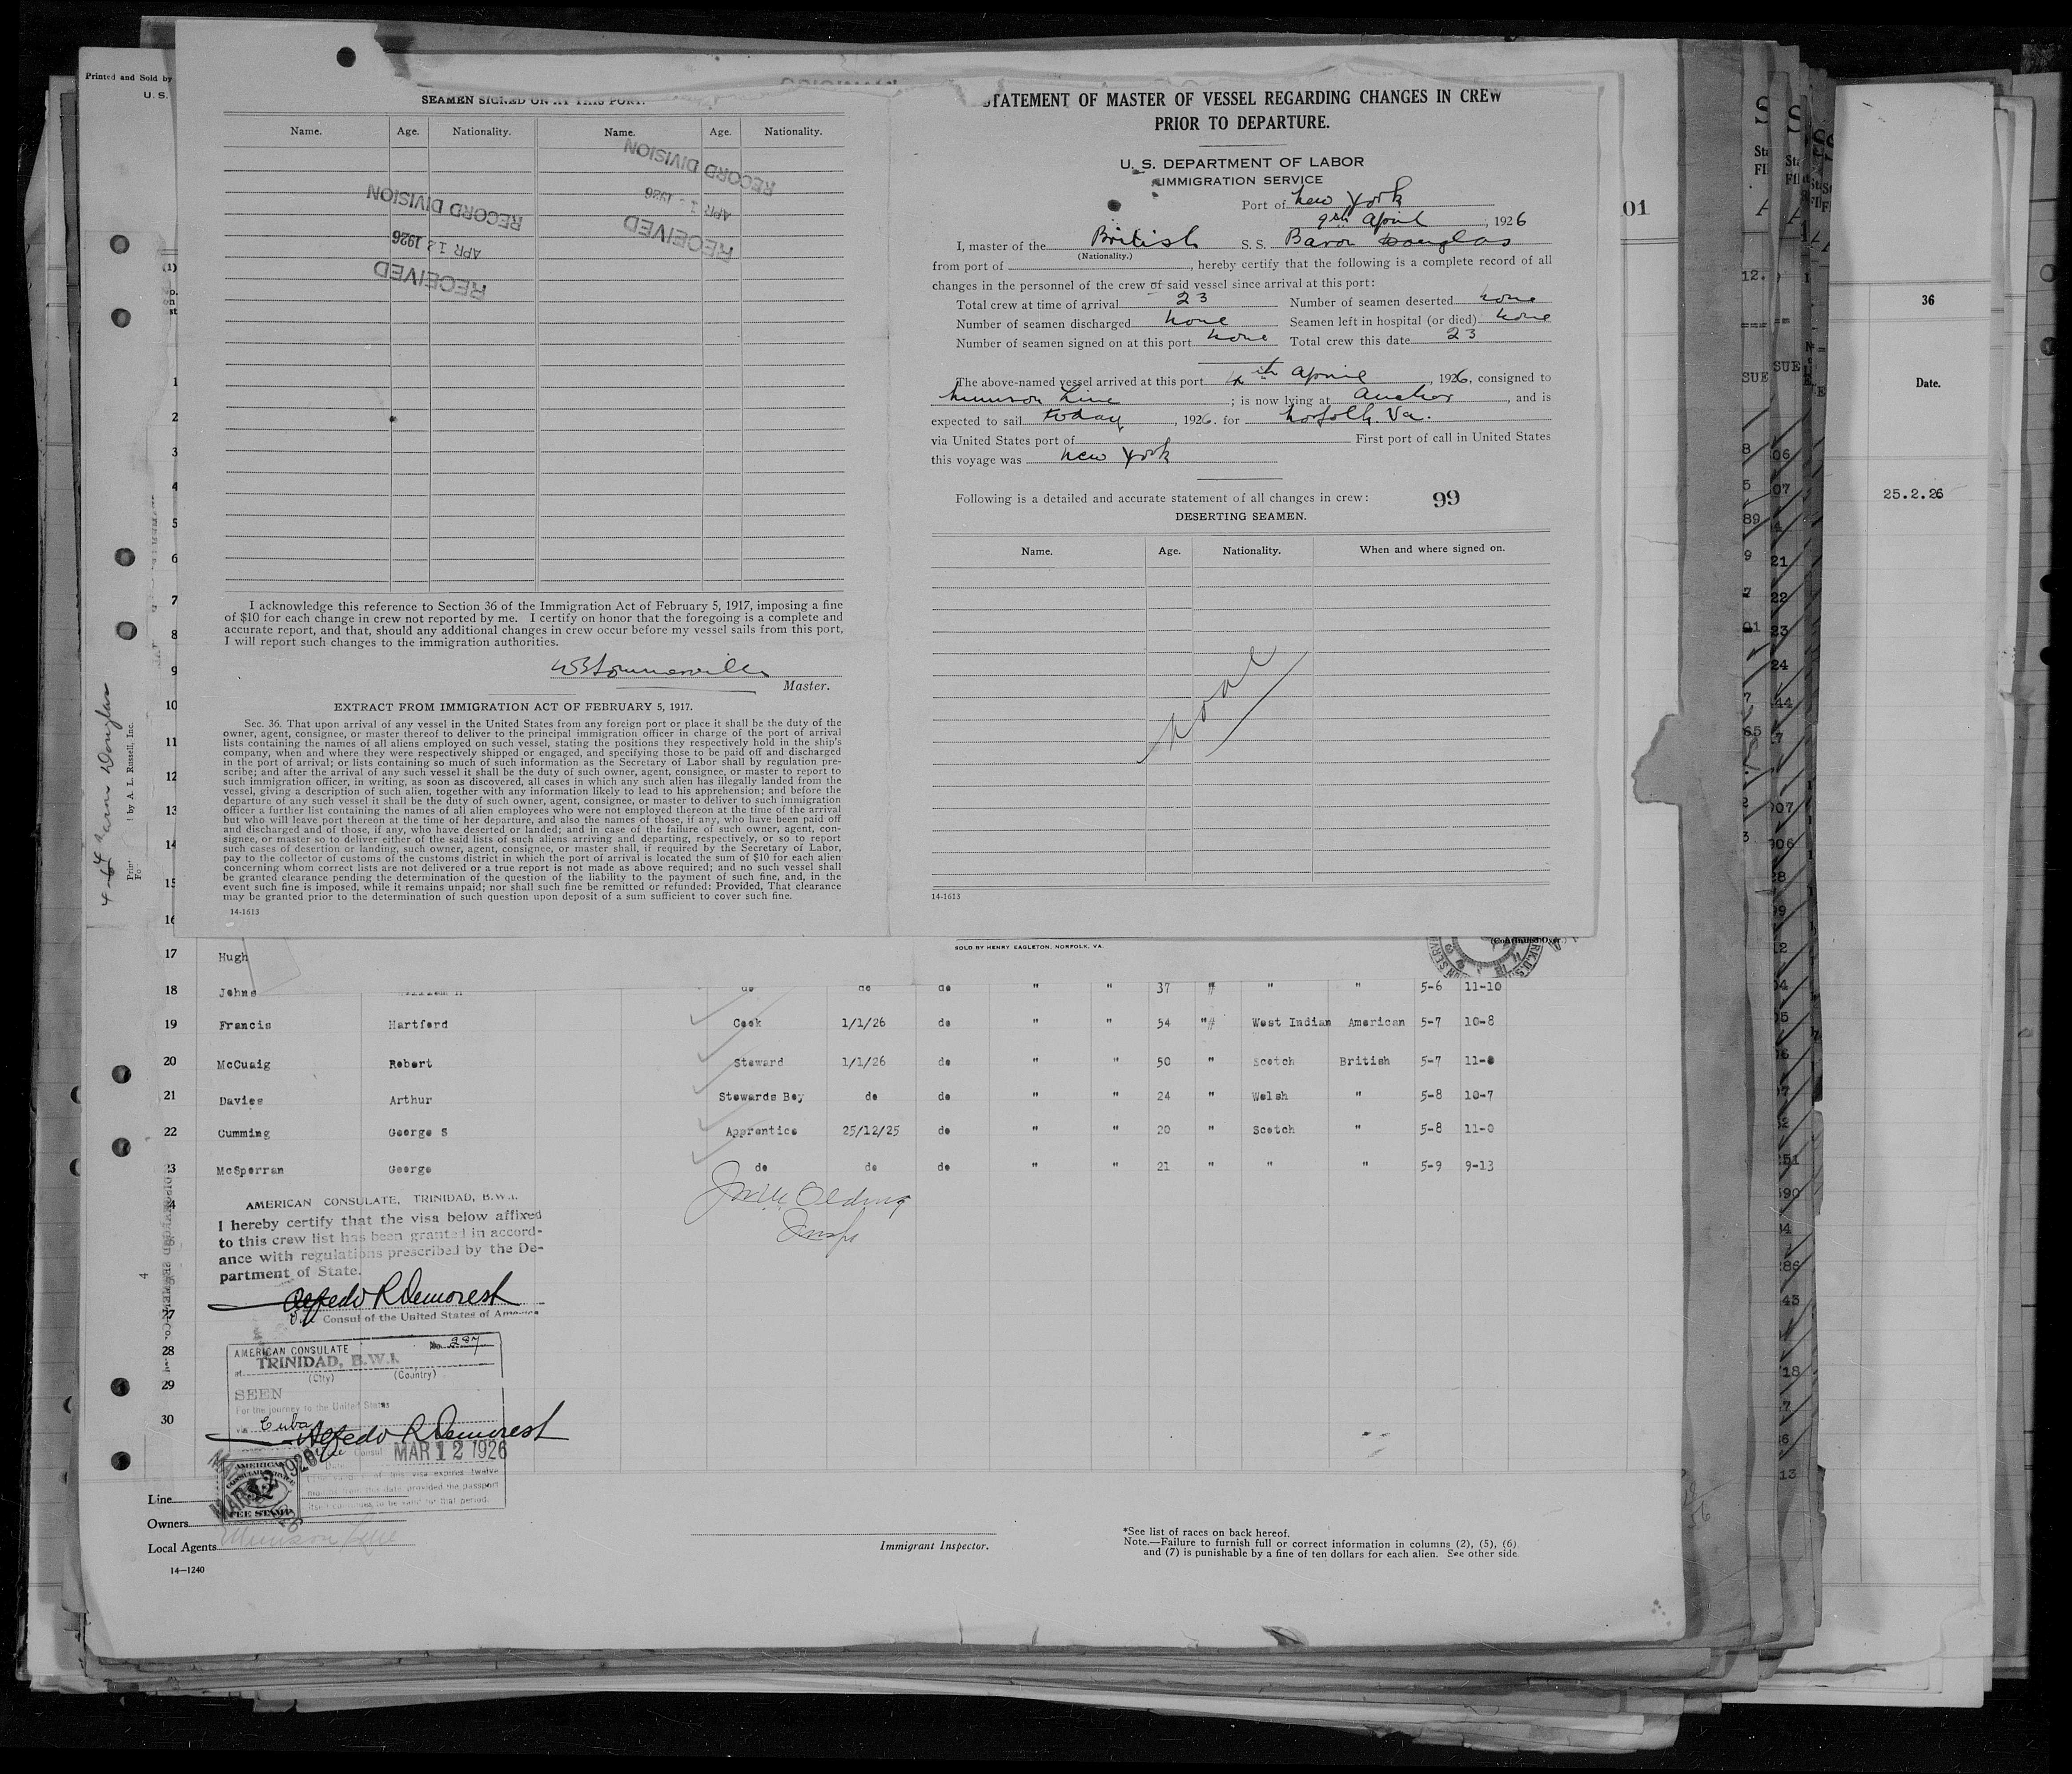 Printed and Sold by
U. S.
SEAMEN SIGNED ON AT THIS PORT.
Name. Age. Nationality. Name. Age. Nationality.
RECORD DIVISION
APR 1 - 1926
RECEIVED
RECORD DIVISION
APR 12 1926
RECEIVED
I acknowledge this reference to Section 36 of the Immigration Act of February 5, 1917, imposing a fine
of $10 for each change in crew not reported by me. I certify on honor that the foregoing is a complete and
accurate report, and that, should any additional changes in crew occur before my vessel sails from this port,
I will report such changes to the immigration authorities.
Master.
EXTRACT FROM IMMIGRATION ACT OF FEBRUARY 5, 1917.
Sec. 36. That upon arrival of any vessel in the United States from any foreign port or place it shall be the duty of the
owner, agent, consignee, or master thereof to deliver to the principal immigration officer in charge of the port of arrival
lists containing the names of all aliens employed on such vessel, stating the positions they respectively hold in the ship's
company, when and where they were respectively shipped or engaged, and specifying those to be paid off and discharged
in the port of arrival; or lists containing so much of such information as the Secretary of Labor shall by regulation pre-
scribe; and after the arrival of any such vessel it shall be the duty of such owner, agent, consignee, or master to report to
such immigration officer, in writing, as soon as discovered, all cases in which any such alien has illegally landed from the
vessel, giving a description of such alien, together with any information likely to lead to his apprehension; and before the
departure of any such vessel it shall be the duty of such owner, agent, consignee, or master to deliver to such immigration
officer a further list containing the names of all alien employees who were not employed thereon at the time of the arrival
but who will leave port thereon at the time of her departure, and also the names of those, if any, who have been paid off
and discharged and of those, if any, who have deserted or landed; and in case of the failure of such owner, agent, con-
signee, or master so to deliver either of the said lists of such aliens arriving and departing, respectively, or so to report
such cases of desertion or landing, such owner, agent, consignee, or master shall, if required by the Secretary of Labor,
pay to the collector of customs of the customs district in which the port of arrival is located the sum of $10 for each alien
concerning whom correct lists are not delivered or a true report is not made as above required; and no such vessel shall
be granted clearance pending the determination of the question of the liability to the payment of such fine, and, in the
event such fine is imposed, while it remains unpaid; nor shall such fine be remitted or refunded: Provided, That clearance
may be granted prior to the determination of such question upon deposit of a sum sufficient to cover such fine.
14-1613
STATEMENT OF MASTER OF VESSEL REGARDING CHANGES IN CREW
PRIOR TO DEPARTURE.
U. S. DEPARTMENT OF LABOR
IMMIGRATION SERVICE
Port of New York
9th April, 1926
I, master of the British S. S. Baron Douglas
(Nationality.)
from port of , hereby certify that the following is a complete record of all
changes in the personnel of the crew of said vessel since arrival at this port:
Total crew at time of arrival 23 Number of seamen deserted none
Number of seamen discharged none Seamen left in hospital (or died) none
Number of seamen signed on at this port none Total crew this date 23
The above-named vessel arrived at this port 4th April, 1926, consigned to
Munson Line ; is now lying at Anchor, and is
expected to sail today, 1926. for Norfolk. Va.
via United States port of First port of call in United States
this voyage was New York
Following is a detailed and accurate statement of all changes in crew: 99
DESERTING SEAMEN.
Name. Age. Nationality. When and where signed on.
none
14-1613
SOLD BY HENRY EAGLETON, NORFOLK, VA.
17 Hugh
18 Johns William H do do do " " 37 " " " 5-6 11-10
19 Francis Hartford Cook 1/1/26 do " " 54 " West Indian American 5-7 10-8
20 McCuaig Robert Steward 1/1/26 do " " 50 " Scotch British 5-7
21 Davies Arthur Stewards Boy do do " " 24 " Welsh " 5-8 10-7
22 Cumming George S Apprentice 25/12/25 do " " 20 " Scotch " 5-8 11-0
23 McSporran George do do do " " 21 " " " 5-9 9-13
AMERICAN CONSULATE, TRINIDAD, B.W.I.
I hereby certify that the visa below affixed
to this crew list has been granted in accord-
ance with regulations prescribed by the De-
partment of State.
Alfredo R Demorest
Consul of the United States of America
AMERICAN CONSULATE No. 287
at TRINIDAD, B.W.I.
(City) (Country)
SEEN
For the journey to the United States
via Cuba
Alfredo R Demorest
Consul
MAR 12 1926
28
29
30
Line
Owners
Local Agents Munson Line
14-1240
Immigrant Inspector.
*See list of races on back hereof.
Note.—Failure to furnish full or correct information in columns (2), (5), (6)
and (7) is punishable by a fine of ten dollars for each alien. See other side.
01
36
Date.
25.2.26